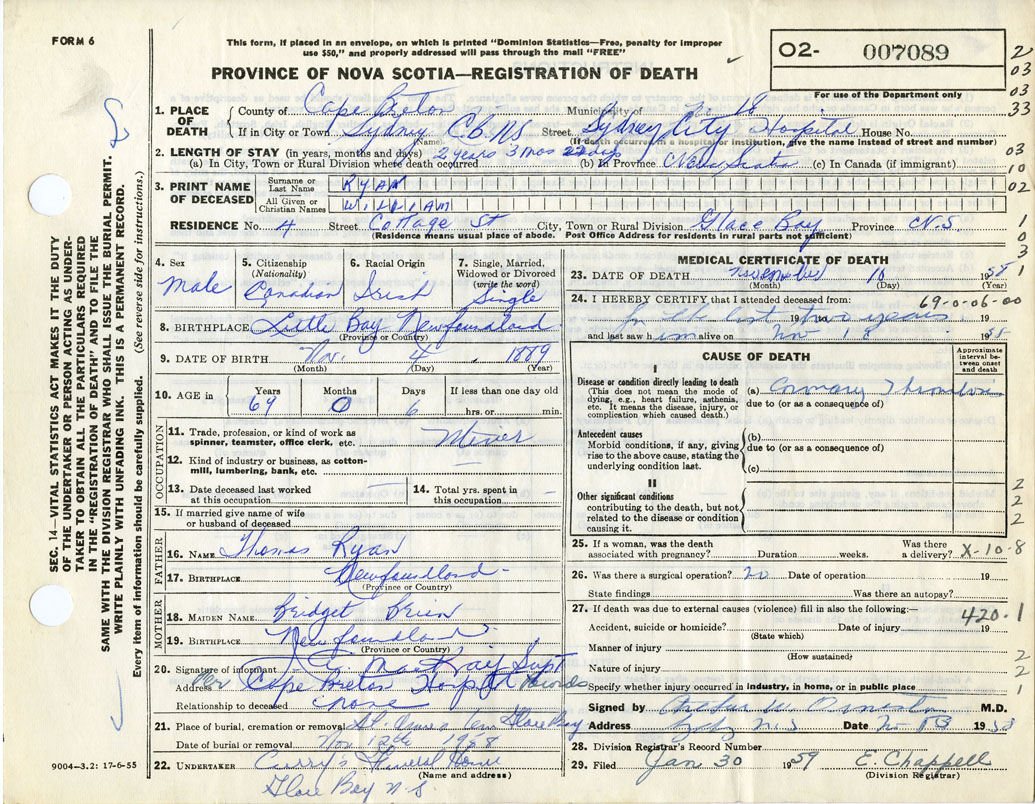 FORM 6
This form, if placed in an envelope, on which is printed "Dominion Statistics—Free, penalty for improper
use $50," and properly addressed will pass through the mail "FREE"
PROVINCE OF NOVA SCOTIA—REGISTRATION OF DEATH
O2- 007089
For use of the Department only
2
03
03
33
1. PLACE OF DEATH
County of Cape Breton Municipality of No 18
If in City or Town Sydney C.B. NS Street Sydney City Hospital House No.
(Name) (If death occurred in a hospital or institution, give the name instead of street and number)
2. LENGTH OF STAY (in years, months and days) 2 years 3 mos 22 days
03
(a) In City, Town or Rural Division where death occurred (b) In Province Nova Scotia (c) In Canada (if immigrant)
10
3. PRINT NAME OF DECEASED
Surname or Last Name RYAN
02
All Given or Christian Names WILLIAM
RESIDENCE No. 4 Street Cottage St City, Town or Rural Division Glace Bay Province N.S.
1
(Residence means usual place of abode. Post Office Address for residents in rural parts not sufficient)
0
3
1
4. Sex Male
5. Citizenship (Nationality) Canadian
6. Racial Origin Irish
7. Single, Married, Widowed or Divorced (write the word) Single
8. BIRTHPLACE Little Bay Newfoundland
(Province or Country)
9. DATE OF BIRTH Nov. 4, 1889
(Month) (Day) (Year)
10. AGE in Years 69 Months 0 Days 6 If less than one day old
hrs. or min.
OCCUPATION
11. Trade, profession, or kind of work as spinner, teamster, office clerk, etc. Miner
12. Kind of industry or business, as cotton-mill, lumbering, bank, etc. —
13. Date deceased last worked at this occupation —
14. Total yrs. spent in this occupation —
15. If married give name of wife or husband of deceased
FATHER
16. NAME Thomas Ryan
17. BIRTHPLACE Newfoundland -
(Province or Country)
MOTHER
18. MAIDEN NAME Bridget Brien
19. BIRTHPLACE Newfoundland -
(Province or Country)
20. Signature of informant MacKay Supt
Address Per Cape Breton Hospital Records
Relationship to deceased none
21. Place of burial, cremation or removal St. Annes Cem Glace Bay
Date of burial or removal Nov 12th 1958
22. UNDERTAKER Curry's Funeral Home
(Name and address)
Glace Bay N.S.
9004—3.2: 17-6-55
MEDICAL CERTIFICATE OF DEATH
23. DATE OF DEATH November 10 1958
(Month) (Day) (Year)
24. I HEREBY CERTIFY that I attended deceased from:
69-0-06-00
for the last two years 19 to 19
and last saw him alive on Nov 1958
CAUSE OF DEATH
Approximate interval between onset and death
I
Disease or condition directly leading to death
(This does not mean the mode of dying, e.g., heart failure, asthenia, etc. It means the disease, injury, or complication which caused death.)
(a) Coronary Thrombosis
due to (or as a consequence of)
Antecedent causes
Morbid conditions, if any, giving rise to the above cause, stating the underlying condition last.
(b)
due to (or as a consequence of)
(c)
II
Other significant conditions
contributing to the death, but not related to the disease or condition causing it.
2
2
2
25. If a woman, was the death associated with pregnancy? Duration weeks. Was there a delivery?
X-10-8
26. Was there a surgical operation? no Date of operation 19
State findings Was there an autopsy?
27. If death was due to external causes (violence) fill in also the following:—
420-1
Accident, suicide or homicide? Date of injury 19
(State which)
Manner of injury
(How sustained)
2
Nature of injury
2
Specify whether injury occurred in industry, in home, or in public place
1
Signed by Arthur W. Ormiston M.D.
Address Sydney N.S Date Nov 1958
28. Division Registrar's Record Number
29. Filed Jan 30 1959 E. Chappell
(Division Registrar)
SEC. 14—VITAL STATISTICS ACT MAKES IT THE DUTY
OF THE UNDERTAKER OR PERSON ACTING AS UNDER-
TAKER TO OBTAIN ALL THE PARTICULARS REQUIRED
IN THE "REGISTRATION OF DEATH" AND TO FILE THE
SAME WITH THE DIVISION REGISTRAR WHO SHALL ISSUE THE BURIAL PERMIT.
WRITE PLAINLY WITH UNFADING INK. THIS IS A PERMANENT RECORD.
Every item of information should be carefully supplied. (See reverse side for instructions.)